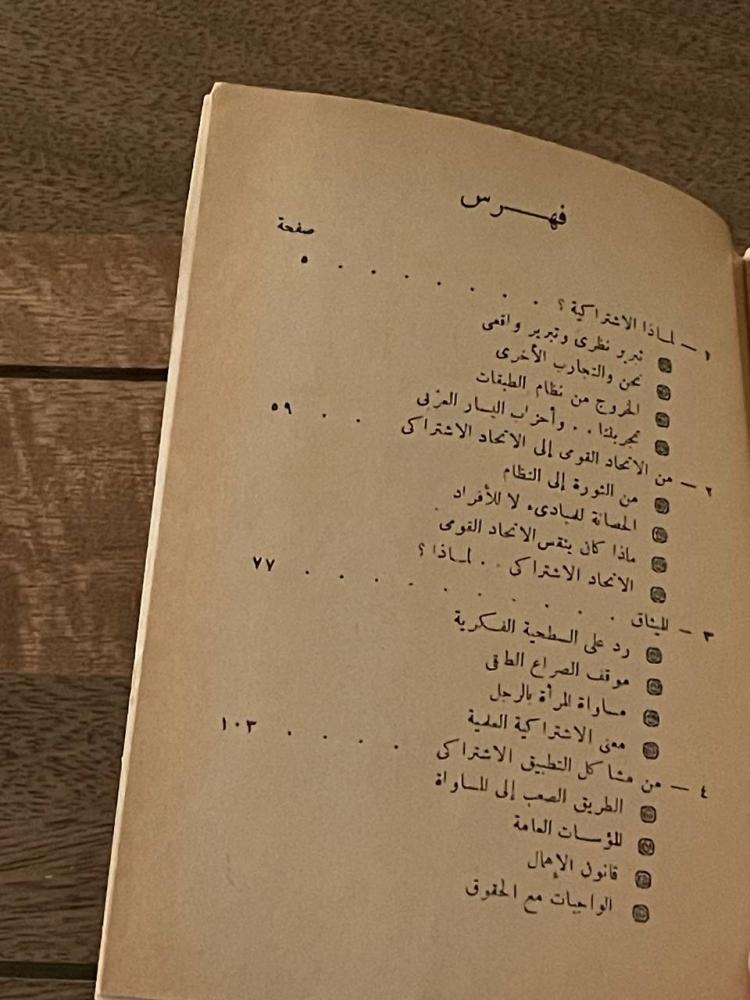 فهرس
صفحة
١ — لماذا الاشتراكية ؟ . . . . . . . ٥
تبرير نظرى وتبرير واقعى
نحن والتجارب الأخرى
الخروج من نظام الطبقات
تجربتنا . . وأحزاب اليسار العربى
٢ — من الاتحاد القومى إلى الاتحاد الاشتراكى . . ٥٩
من الثورة إلى النظام
الحصانة للمبادىء لا للأفراد
ماذا كان ينقص الاتحاد القومى
الاتحاد الاشتراكى . . لماذا ؟
٣ — الميثاق . . . . . . . . . ٧٧
رد على السطحية الفكرية
موقف الصراع الطبقى
مساواة المرأة بالرجل
معنى الاشتراكية العلمية
٤ — من مشاكل التطبيق الاشتراكى . . . . ١٠٣
الطريق الصعب إلى المساواة
المؤسسات العامة
قانون الإهمال
الواجبات مع الحقوق